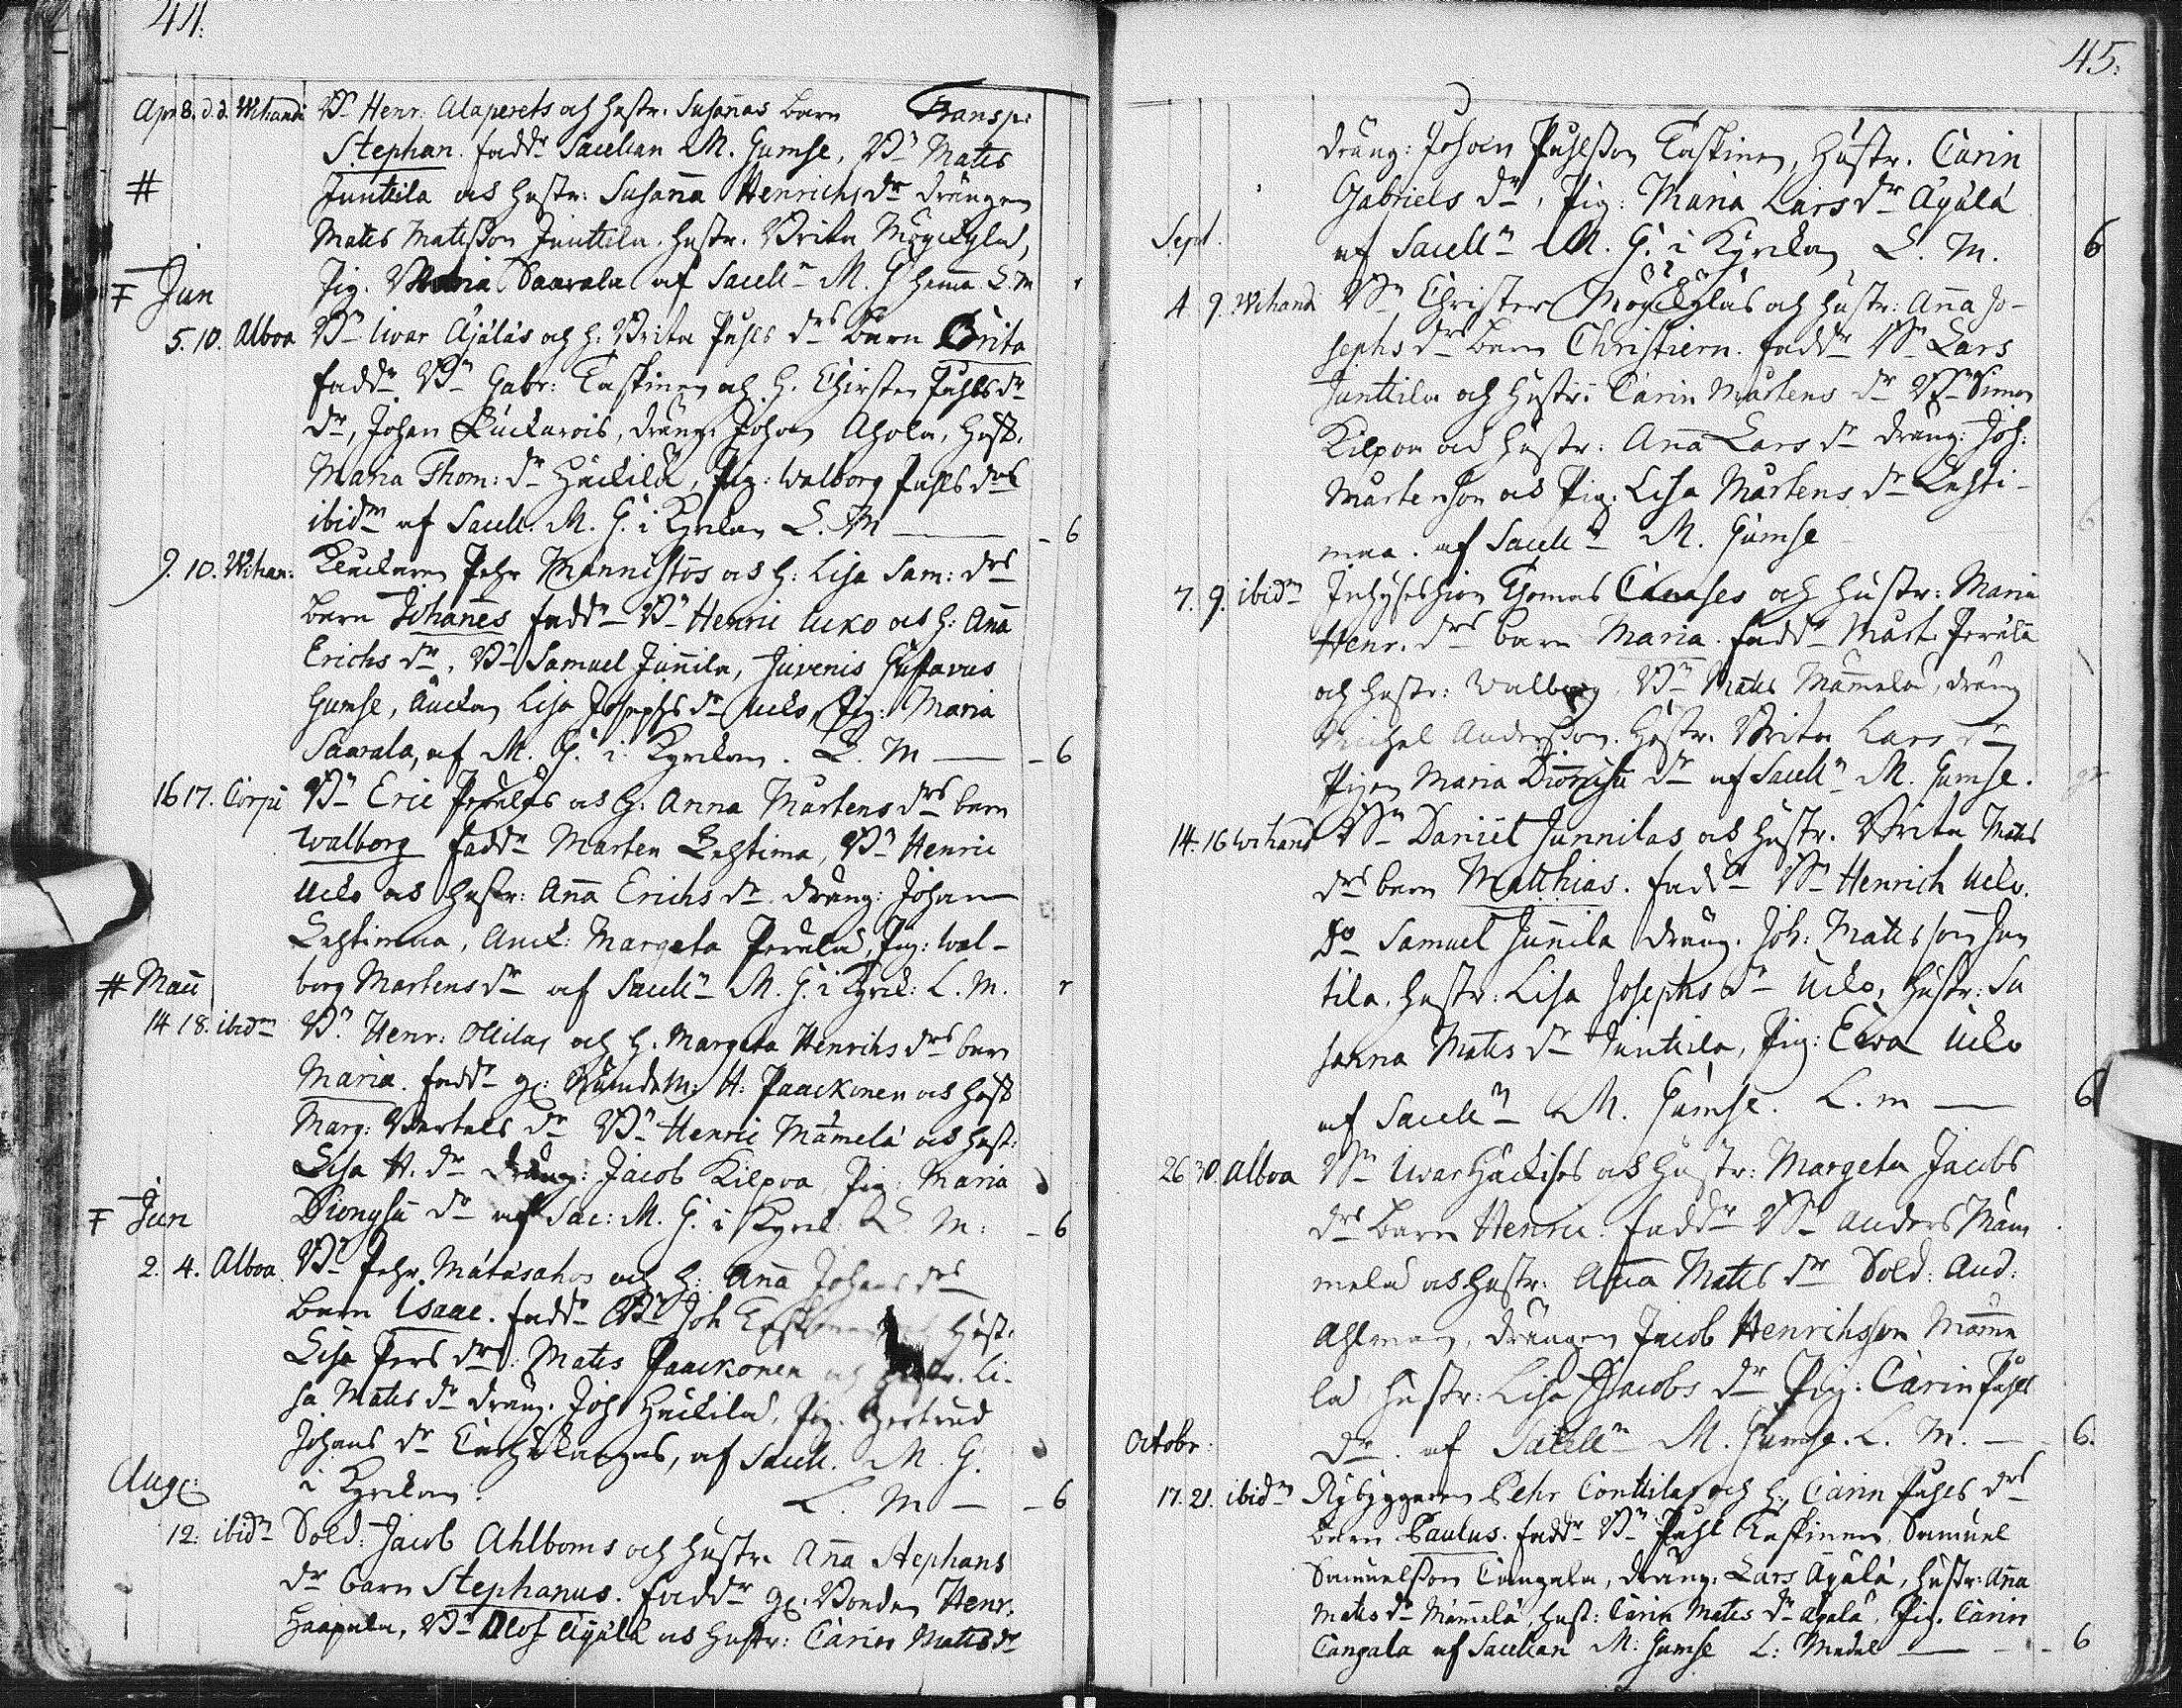 44:
Apr. 8. d.d. Wihandi Bn Henr: Alaperets och hustr: Susannas barn Transp:
Stephan. fadd: Sacellan M. Gumse, Bn Mats
# Junttila och hustr: Susanna Henrichs dr drängen
Mats Matsson Junttila. hustr. Brita Möyckylä,
F Jun Pig. Maria Saarala af Sacelln M. G hemma L. M
5. 10. Alboa Bn Iwar Äjäläs och h. Brita Påhls drs barn Brita
fadd: Bn Gabr: Taskinen och h. Chirstin Påhls dr
dr, Johan Luckarois, dräng: Johan Ahola, Hust.
Maria Thom: dr Häckilä, Pig: Walborg Påhls dr
ibidm af Sacell: M. G. i Kyrkan L. M — 6
9. 10. Wihan: Klockaren Pehr Mannistös och h: Lisa Sam: drs
barn Johannes fadd: Bn Henric Ucko och h: Anna
Erichs dr, Bn Samuel Junnila, Juvenis Gustavus
Gumse, Änckan Lisa Josephs dr Ucko, Pig: Maria
Saarala, af M. G. i Kyrckan. L. M — 6
16 17. Corpi Bn Eric Perälas och h: Anna Mårtens drs barn
Walborg fadd: Marten Lehtima, Bn Henric
Ucko och hustr: Anna Erichs dr. dräng: Johan
Lehtimaa, Änck: Margeta Perälä, Pig: Wal-
# Maii borg Martens dr af Sacelln M. G. i Kyrck: L. M. r
14 18. ibidm Bn Henr: Ollilas och h. Margeta Henrichs drs barn
Maria. fadd: H: Paackonen och hust
Marg: Bertels dr Bn Henric Mämelä och hust:
Lisa H. dr dräng: Jacob Kilpoa, Pig: Maria
F Jun Dionysii dr af Sac: M. G. i Kyrck L. M: — 6
2. 4. Alboa Bn Pehr Matasahos och h: Anna Johans drs
barn Isaac. fadd: Bn Joh hust.
Lisa Pers dr: Mats Paackonen och hustr. Li-
sa Mats dr dräng. Joh Häckilä, Pig. Gertrud
Johans dr af Sacell. M. G.
Aug: i Kyrckan. L. M — 6
12: ibidm Sold: Jacob Ahlboms och hustr. Anna Stephans
dr barn Stephanus. fadd: gl. Bonden Henr.
Haapala, Bn Olof Äijälä och hustr: Carin Mats dr
45:
dräng: Johan Påhlsson Taskinen, hustr. Carin
Gabriels dr, Pig: Maria Lars dr Äyälä
Sept. af Sacelln M. G. i Kyrckan L. M. 6
4 9. Wihandi Bn Christer Möyckyläs och hustr: Anna Jo-
sephs drs barn Christiern. fadd: Bn Lars
Junttila och hustr: Carin Mårtens dr Bn Simon
Kilpoa och hustr: Anna Lars dr dräng: Joh:
Mårtenson och Pig: Lisa Mårtens dr Lehti-
maa. af Sacelln M. Gumse
7. 9. ibidm Inhyseshion Thomas och hustr: Maria
Henr. drs barn Maria. fadd: Mårt. Perälä
och hustr: Walborg, Bn Mats Mämmelä, dräng
Michel Andersson. hustr. Brita Lars dr
Pigan Maria Dionysii dr af Sacelln M. Gumse.
14. 16 Wihand Bn Daniel Junnilas och hustr. Brita Mats
drs barn Matthias. fadd: Bn Henrich Ucko.
Do Samuel Junnila dräng. Joh: Matsson Jun
tila. hustr: Lisa Josephs dr Ucko, hustr: Su
sanna Mats dr Junttila, Pig: Ewa Ucko
af Sacelln M. Gumse. L. m — 6
26 30. Alboa Bn Iwar Häckilös och hustr: Margeta Jacobs
drs barn Henric. fadd: Bn Anders Mäm
melä och hustr: Anna Mats dr Sold: And:
Ahlman, drängen Jacob Henrichsson Mämme
lä, hustr: Lisa Jacobs dr Pig: Carin Påhls
Octobr: dr. af Sacelln M. Gumse. L. M. — 6.
17. 21. ibidm Nybyggaren Pehr Conttilas och h. Carin Påhls drs
barn Paulus. fadd: Bn Påhl Taskinen. Samuel
Samuelsson Cangala, dräng: Lars Äyälä, hustr: Anna
Mats dr Mämmelä, hust: Carin Mats dr Äyälä, Pig. Carin
Cangala af Sacellan M: Gumse L: Medel — 6